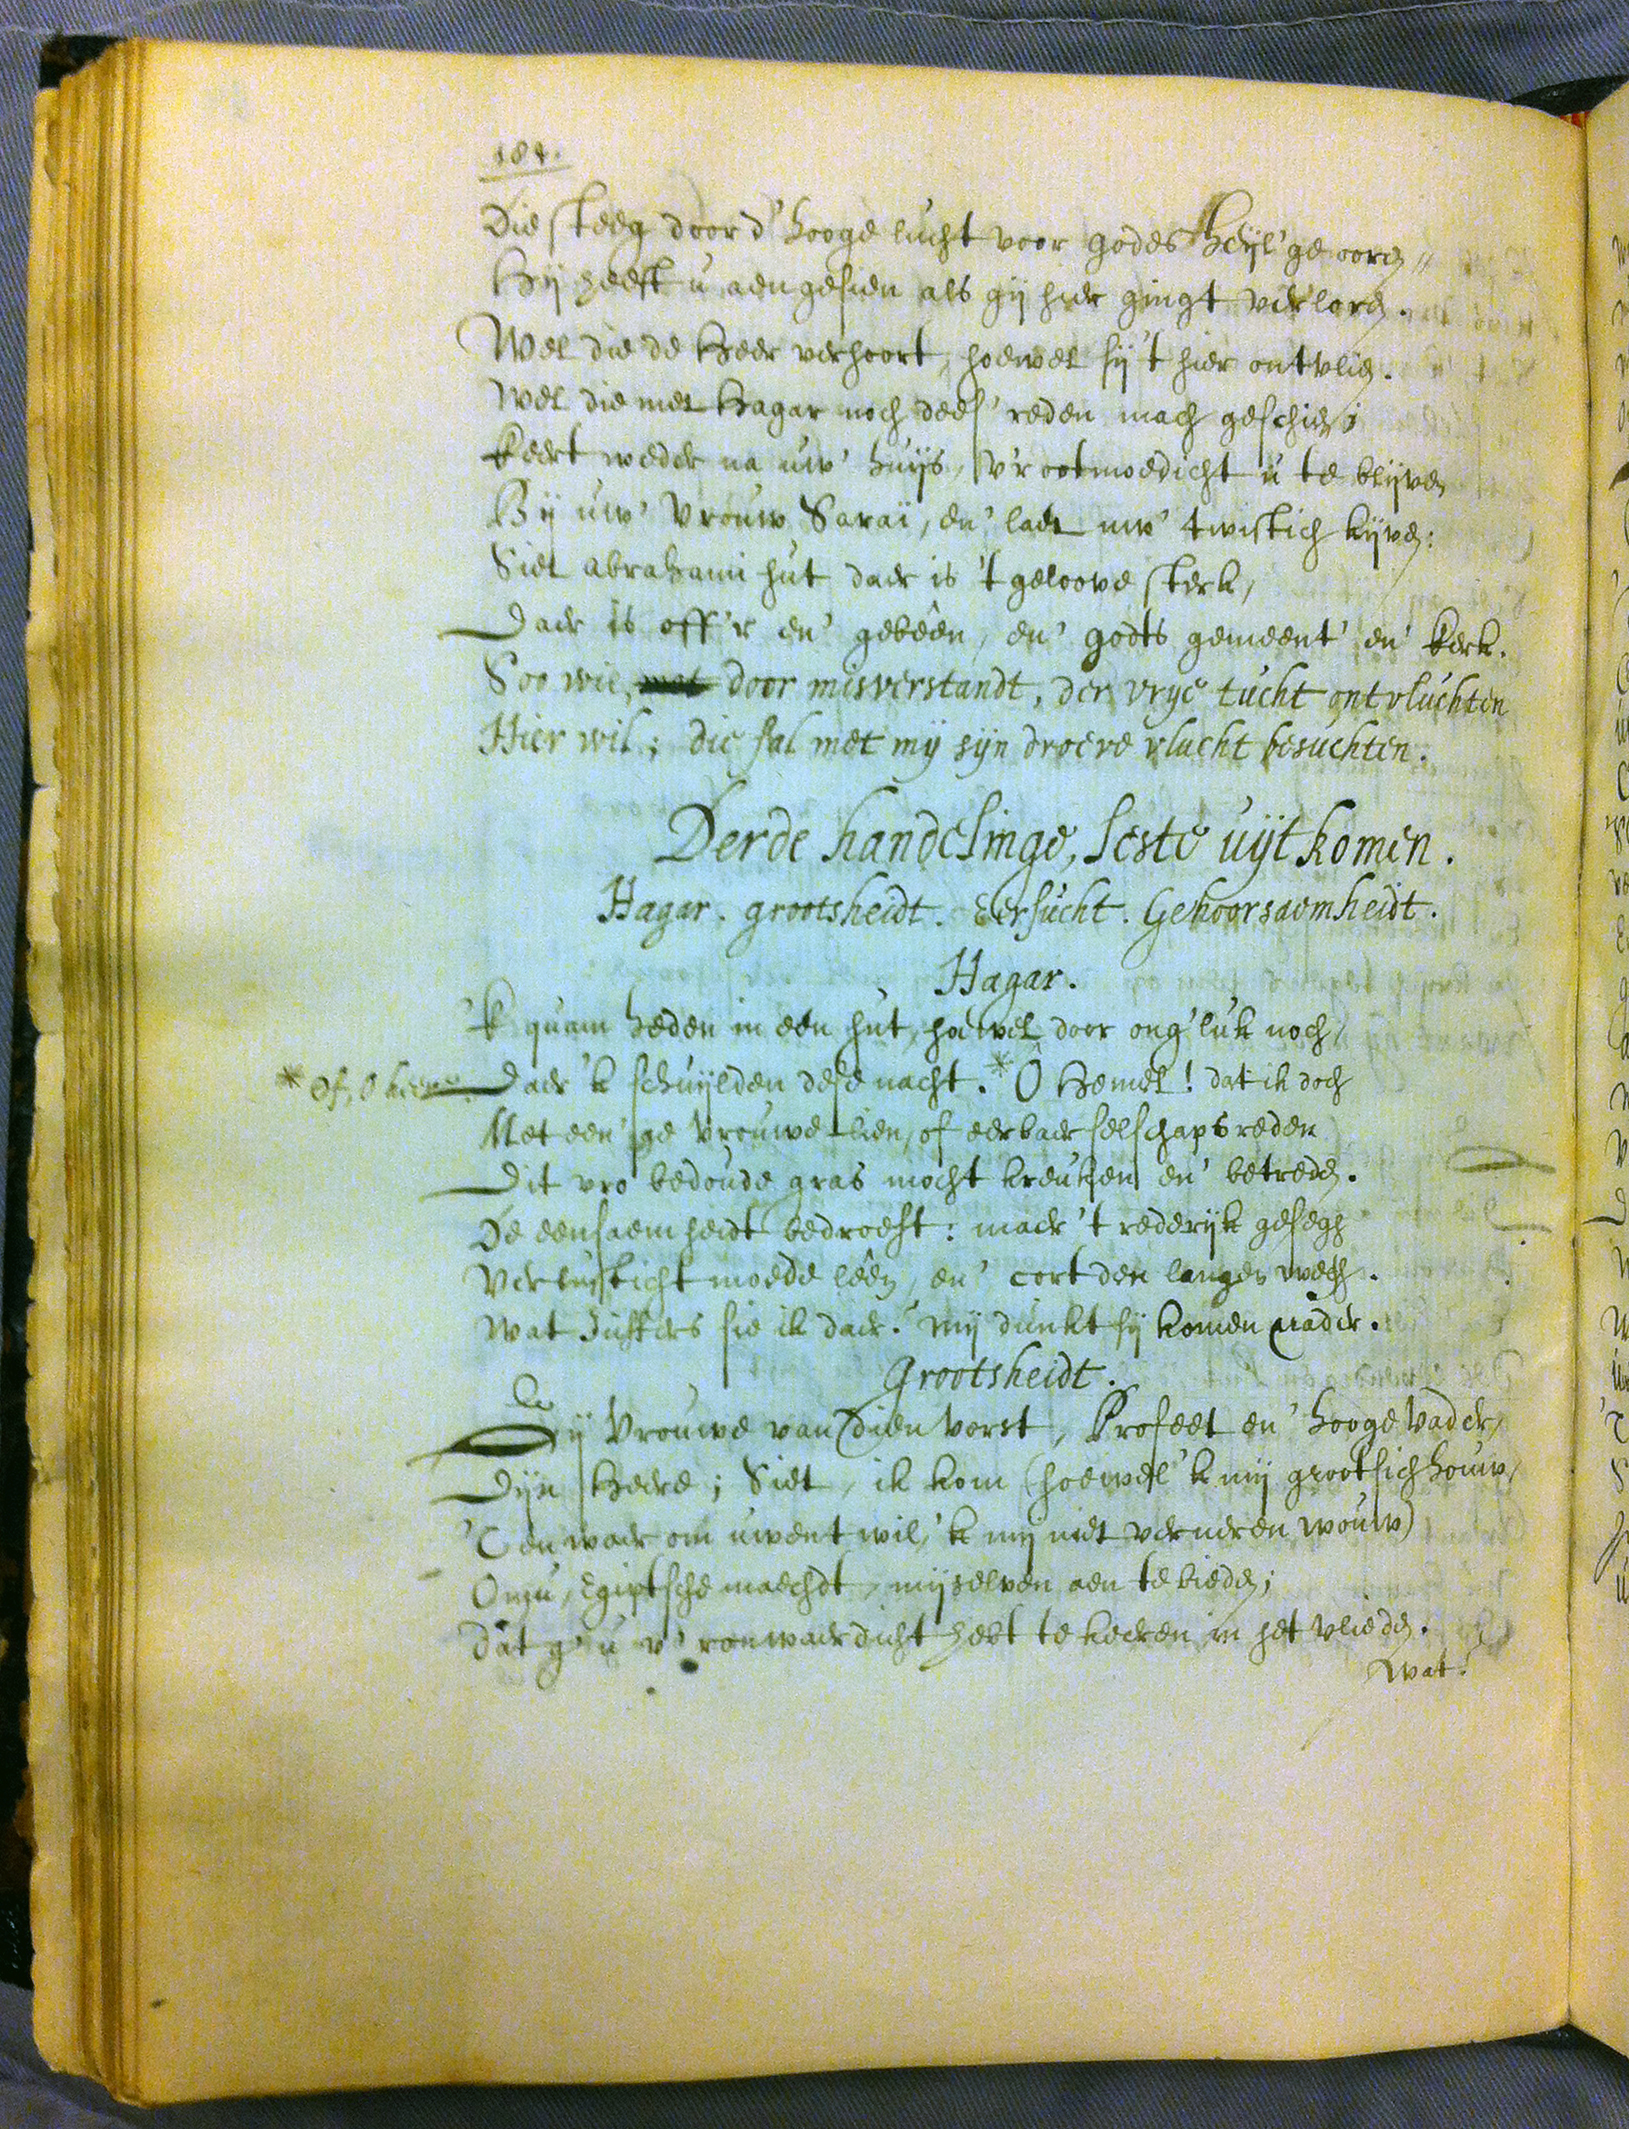 184.
Die steeg door d' hooge lucht voor Godes heijl'ge ooren
Hij heeft u aengesien als gij hier gingt verloren.
Wel die de Heer verhoort, hoewel hij 't hier ontvlien.
Wel die met Hagar noch dees' reden mach geschien;
Keert weder na uw' huijs, v'rootmoedicht u te blijven
Bij uw' Vrouw Saraï, en' laet uw' twistich kijven:
Siet Abrahami hut daer is 't geloove sterk,
Daer is off'r en' gebêen, en' Godts gemeent' en' Kerk.
Soo wie, door misverstandt, der vrije tucht ontvluchten
Hier wil; die sal met mij sijn droeve vlucht besuchten.
Derde handelinge, seste uijtkomen.
Hagar. grootsheidt. Eersucht. Gehoorsaemheidt.
Hagar.
'k quam heden in een hut, hoewel door ong'luk noch,
* Of, O heere. Daer 'k schuijlden dese nacht. * Ô Hemel! dat ik doch
Met een'ge Vrouwe-lien, of eerbaer selschaps reden
Dit vro bedoude gras mocht kreuken en' betreden.
De eensaemheidt bedroeft: maer 't rederijk gesegh
Verlusticht moede lêen, en' cort den langen wegh.
Wat Juffers sie ik daer? mij dunkt sij komen nader.
Grootsheidt.
Gij Vrouwe van dien Vorst, Profeet en' hooge Vader,
Dijn Heere; Siet, ik kom (hoewel 'k mij grootsich houw,
'T en waer om uwent wil, 'k mij niet verneren wouw)
Om u, Egiptsche maechdt, mijselven aen te bieden;
Dat g' u v'ronwaerdicht hebt te keeren in het vlieden.
Wat